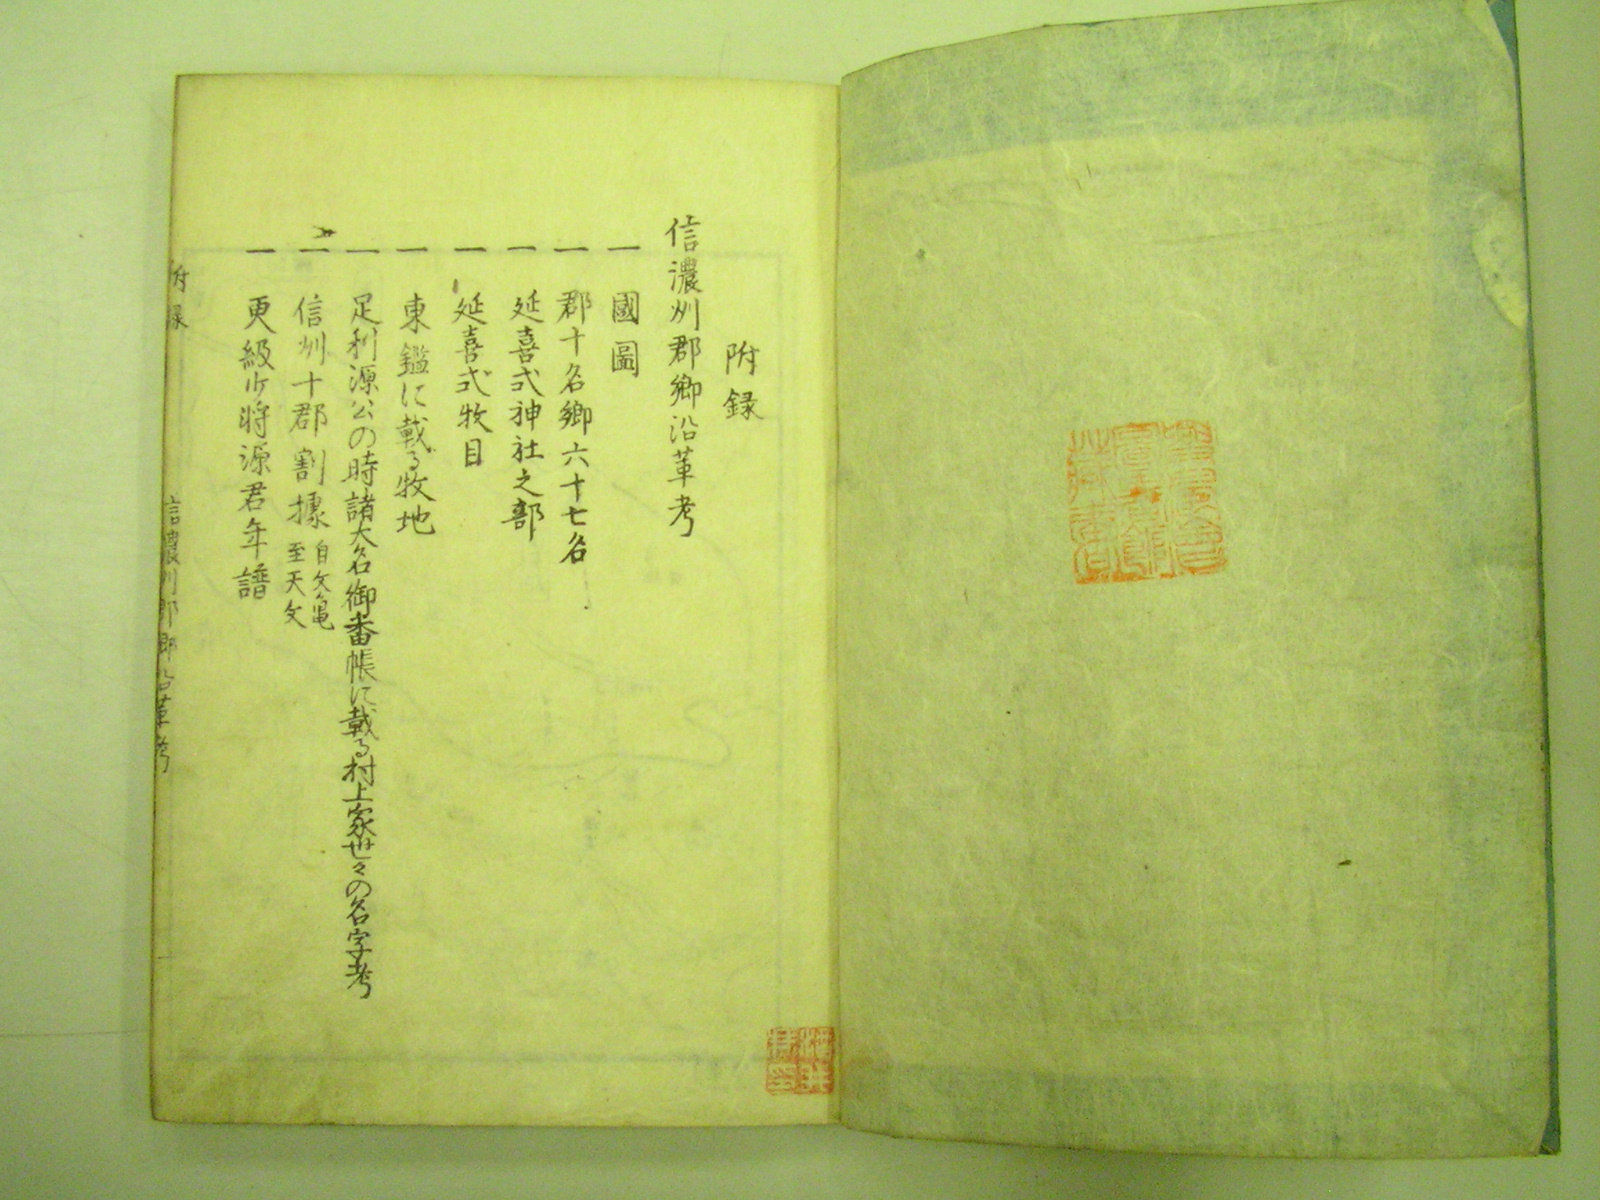 附録
信濃州郡郷沿革考
一 國圖
一 郡十名郷六十七名
一 延喜式神社之部
一 延喜式牧目
一 東鑑に載る牧地
一 足利源公の時諸大名御番帳に載る村上家世々の名字考
一 信州十郡割據 自文亀至天文
一 更級少将源君年譜
附録
信濃州郡郷沿革考